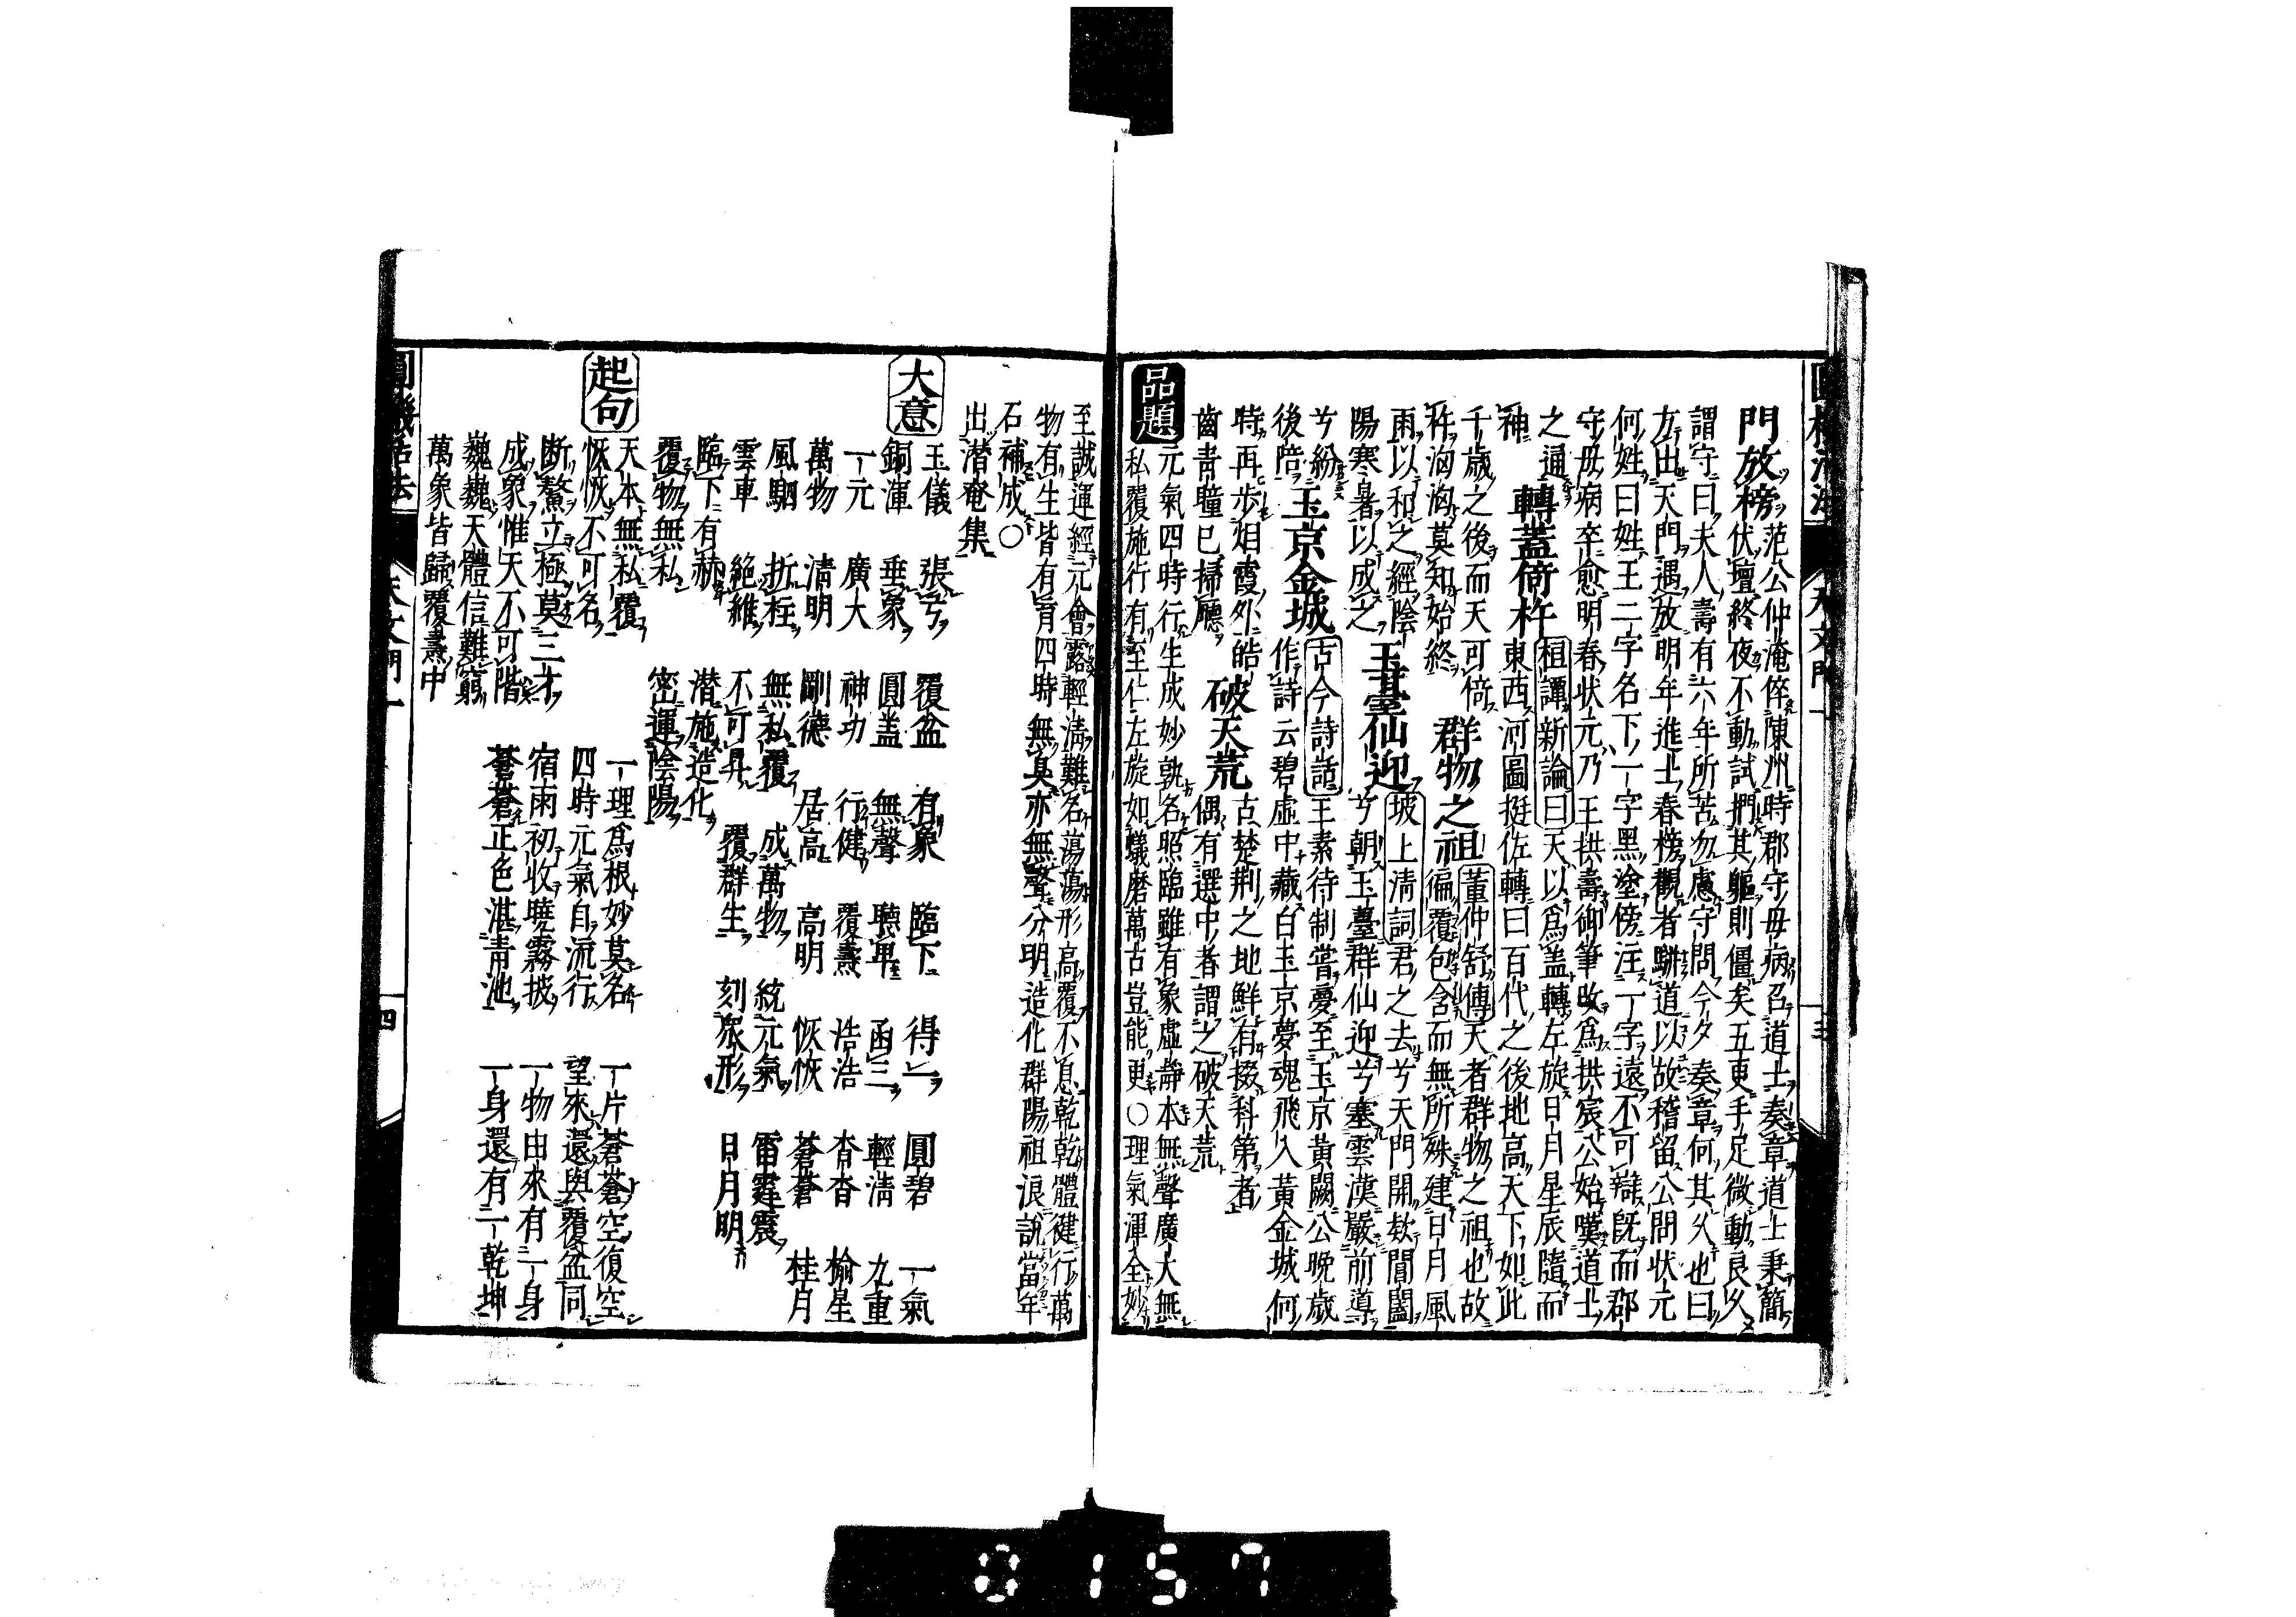 門放榜范公仲淹倅陳州時郡守母病召道士奏章道士秉簡
伏壇終夜不動試捫其軀則僵矣五更手足微動良久
謂守曰夫人壽有六年所苦勿慮守問今夕奏章何其久也曰
方出天門遇放明年進士春榜觀者駢道以故稽留公問狀元
何姓曰姓王二字名下一字黑塗傍注一字遠不可辯既而郡
守母病卒愈明春狀元乃王拱壽御筆改爲拱宸公始嘆道士
之通神
轉蓋倚杵桓譚新論曰天以爲盖轉左旋日月星辰隨而
東西河圖挺佐轉曰百代之後地高天下如此
千歲之後而天可倚杵洶洶莫知始終
群物之祖董仲舒傳天者群物之祖也故
徧覆包含而無所殊建日月風
雨以和之經陰陽寒暑以成之
玉臺仙迎坡上清詞君之去兮天門開欵閶闔
兮朝玉臺群仙迎兮塞雲漢嚴前導
兮紛後陪
玉京金城古今詩話王素待制嘗夢至玉京黃闕公晚歲
作詩云碧虛中藏白玉京夢魂飛入黃金城何
時再步烟霞外皓齒青瞳已掃廳
破天荒古楚荆之地鮮有掇科第者
偶有選中者謂之破天荒
品題
元氣四時行生成妙孰名照臨雖有象虛靜本無聲廣大無
私覆施行有至仁左旋如蟻磨萬古豈能更○理氣渾全妙
至誠運經元會露輕清難名蕩蕩形高覆不息乾乾體健行萬
物有生皆有育四時無臭亦無聲分明造化群陽祖浪說當年
石補成○
出潛奄集
大意
玉儀 張弓 覆盆 有象 臨下 得一 圓碧 一氣
銅渾 垂象 圓盖 無聲 聽卑 函三 輕清 九重
一元 廣大 神功 行健 覆燾 浩浩 杳杳 榆星
萬物 清明 剛德 居高 高明 恢恢 蒼蒼 桂月
風駟 折柱 無私覆 成萬物 統元氣 雷霆震
雲車 絕維 不可昇 覆群生 刻衆形 日月明
臨下有赫 潜施造化
覆物無私 密運陰陽
起句
天本無私覆 一理爲根妙莫名 一片蒼蒼空復空
恢恢不可名 四時元氣自流行 望來還與覆盆同
断鰲立極莫三才 宿雨初收曉霧披 一物由來有一身
成象惟天不可階 蒼蒼正色湛青池 一身還有一乾坤
巍巍天體信難窮
萬象皆歸覆燾中
圓機活法 天文門一 四
0157